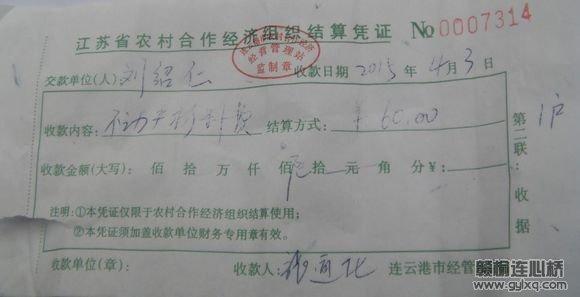 江苏省农村合作经济组织结算凭证 No 0007314
经营管理站
监制章
交款单位(人) 刘绍仁 收款日期 2015 年 4 月 3 日
收款内容: 结算方式: ¥60.00
收款金额(大写): 佰 拾 万 仟 佰 陆 拾 元 角 分 ¥:
注明:①本凭证仅限于农村合作经济组织结算使用;
②本凭证须加盖收款单位财务专用章有效。
收款单位(章): 收款人: 连云港市经管
第二联:收据
沪
赣榆连心桥
www.gylxq.com